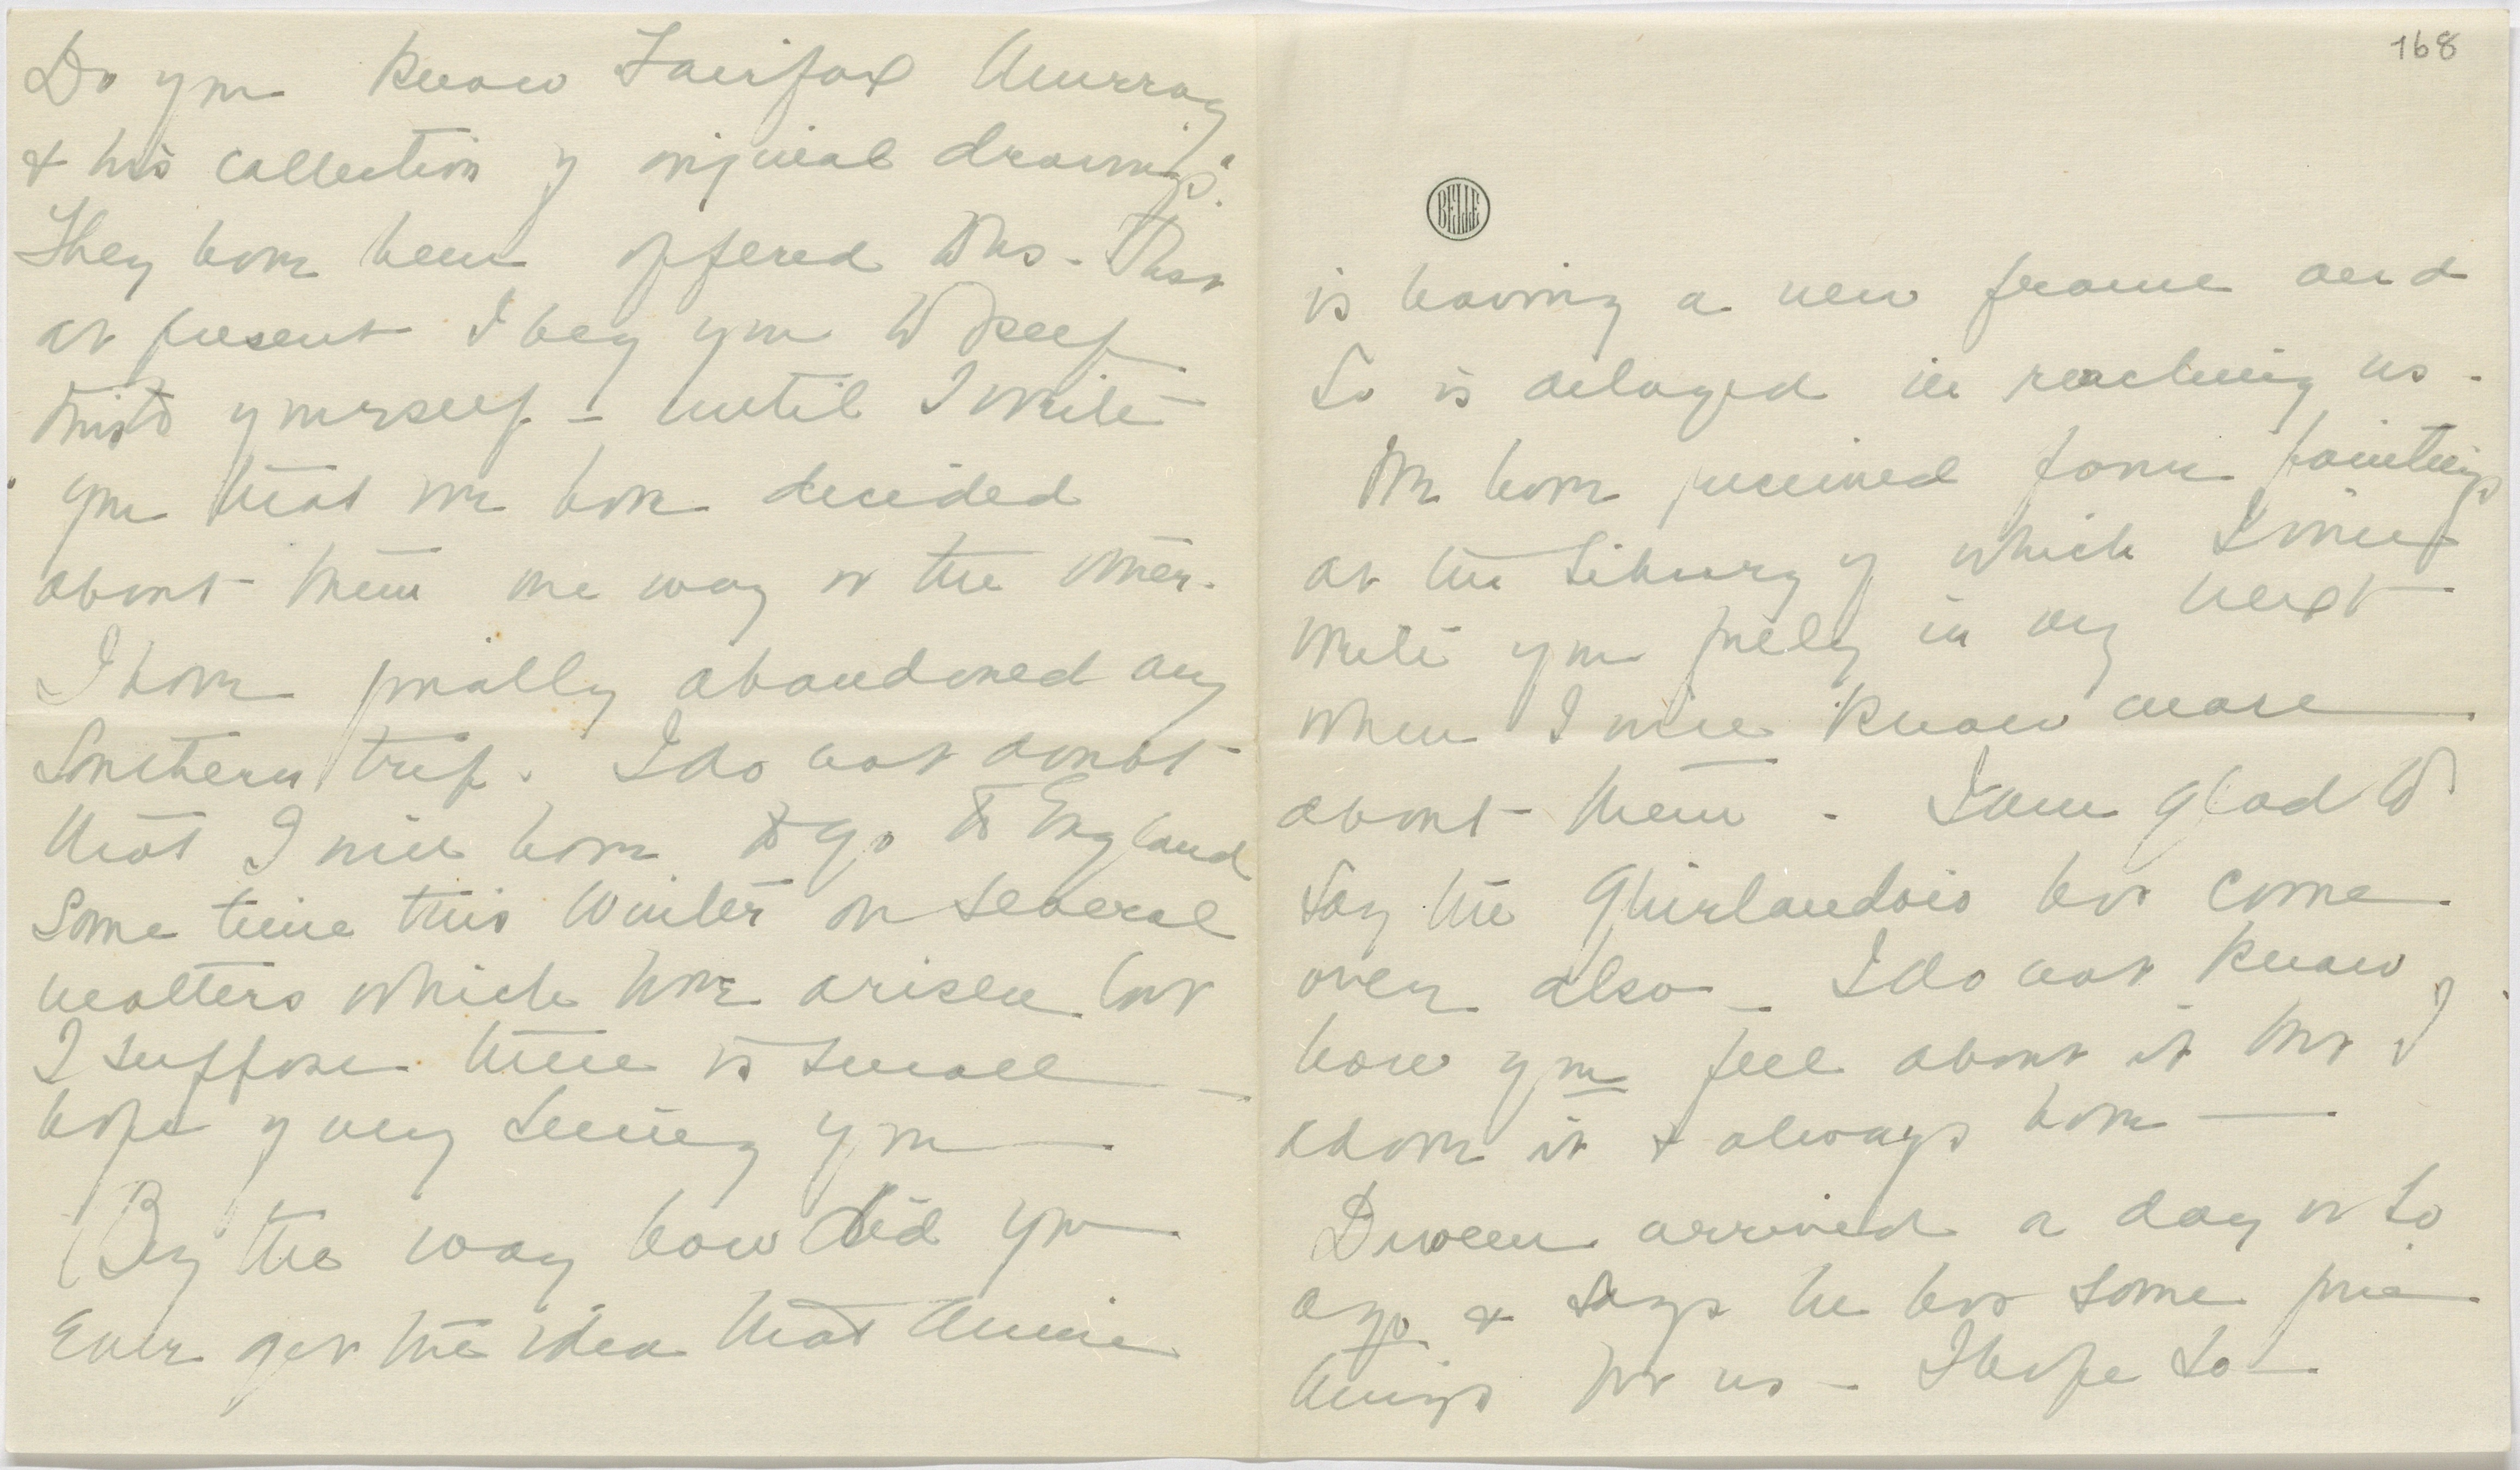 Do you know Fairfax Murray
& his collection of original drawings?
They have been offered to us - But
at present I beg you to keep
this to yourself - until I write
you that we have decided
about them one way or the other.
I have finally abandoned my
Southern trip. I do not doubt
that I will have to go to England
some time this Winter on several
matters which have arisen but
I suppose there is small
hope of my seeing you —
(By the way how did you
ever get the idea that Anne
168
BELLE
is having a new frame and
so is delayed in reaching us -
We have received four paintings
at the Library of which I will
write you fully in my next
when I will know more
about them - I am glad to
say the Ghirlandaio has come
over also - I do not know
how you feel about it but I
adore it & always have —
Duveen arrived a day or so
ago & says he has some fine
things for us - I hope so —